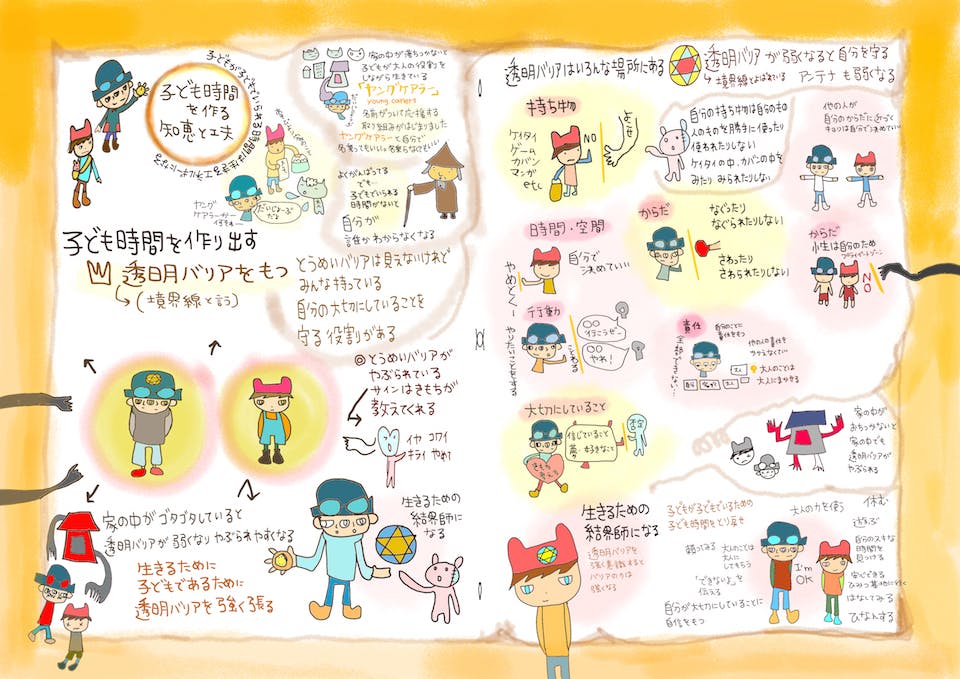 子どもが子どもでいられる時間は
子ども時間
を作る
知恵と工夫
家の中が落ちつかないと
子どもが大人の役割を
しながら生きている
「ヤングケアラー」
young carers
名前がついて応援する
取り組みがはじまりました
ヤングケアラーと自分で
名乗ってもいい。名乗らなくてもいい
ヤング
ケアラーかー
だいじょーぶだよ
よくがんばってる
でも
子どもでいられる
時間がないと
自分が
誰かわからなくなる
子ども時間を作り出す
透明バリアをもつ
(境界線と言う)
とうめいバリアは見えないけれど
みんな持っている
自分の大切にしていることを
守る役割がある
◎とうめいバリアが
やぶられている
サインはきもちが
教えてくれる
イヤ コワイ
キライ やめて
家の中がゴタゴタしていると
透明バリアが弱くなりやぶられやすくなる
生きるために
子どもであるために
透明バリアを強く張る
生きるための
結界師に
なる
透明バリアはいろんな場所にある
透明バリアが弱くなると自分を守る
アンテナも弱くなる
境界線とよばれている
持ち物
ケイタイ
ゲーム
カバン
マンガ
etc
NO
よせ
自分の持ち物は自分のもの
人のものを勝手に使ったり
使われたりしない
ケイタイの中、カバンの中を
みたり みられたりしない
他の人が
自分のからだに近づく
キョリは自分で決めていい
時間・空間
自分で
決めていい
やめとくー
からだ
なぐったり
なぐられたりしない
さわったり
さわられたりしない
からだ
小生は自分のため
プライベートゾーン
NO
行動
○○
行こうぜー
○○
やれ!
ことわる
やりたいことをする
責任
自分のことに
責任をもつ
他の人の責任を
大人のことは
大人にまかせる
全部できない
大切にしていること
信じていること
夢・好きなこと
否定
きもち
考え方
家の中が
おちつかないと
家の中でも
透明バリアが
やぶられる
生きるための
結界師になる
透明バリアを
強く意識すると
バリアの力は
強くなる
子どもが子どもでいるための
子ども時間をとり戻せ
頼ってみる
大人のことは
大人に
してもらう
「できないよ」を
伝える
自分が大切にしていることに
自信をもつ
大人の力を使う
I'm
OK
休む
遊ぶ
自分のスキな
時間を
見つける
安心できる
ひみつ基地に行く
はなしてみる
ひなんする